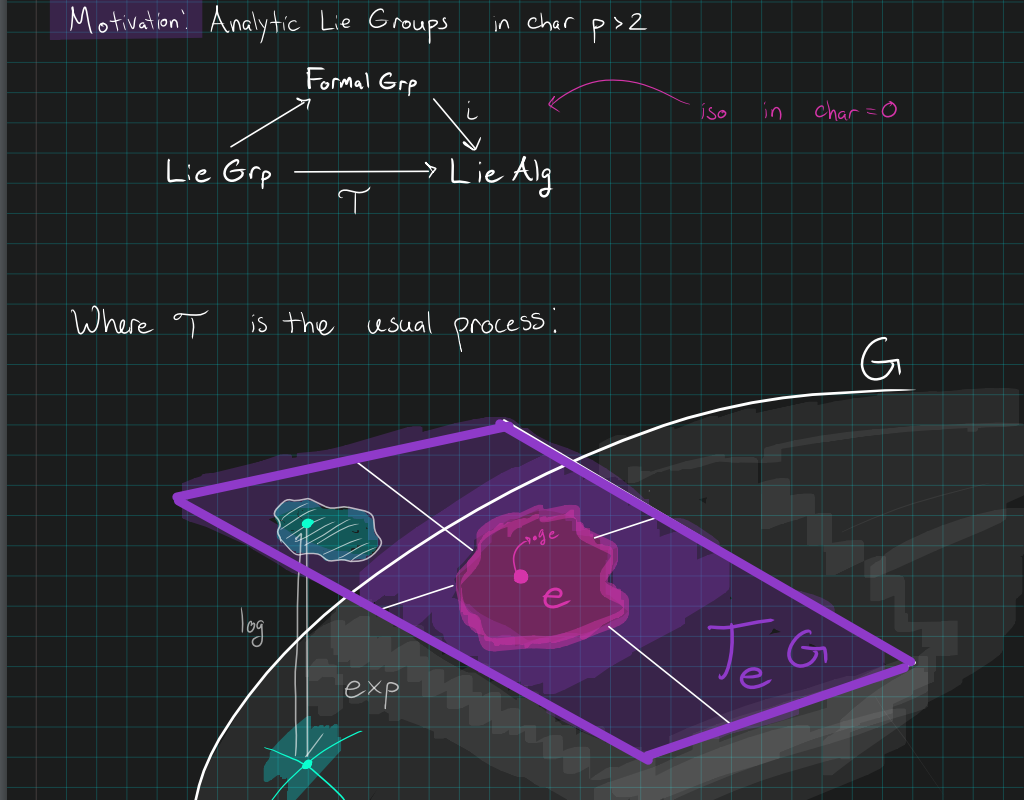 Motivation: Analytic Lie Groups in char p > 2
Formal Grp
i
iso in char = 0
Lie Grp
Lie Alg
T
Where T is the usual process:
G
ge
e
log
T_e G
exp